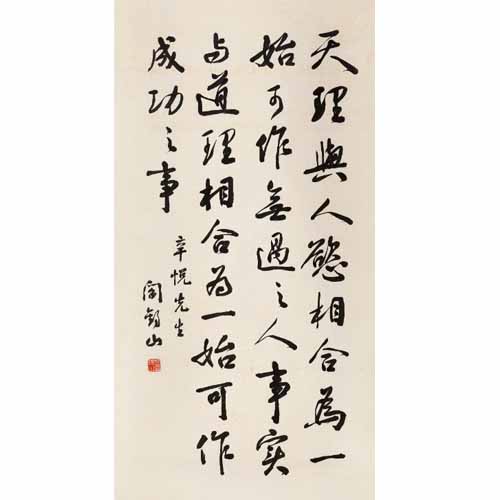 天理與人慾相合為一
始可作無過之人事实
与道理相合为一始可作
成功之事
辛悦先生
閻錫山